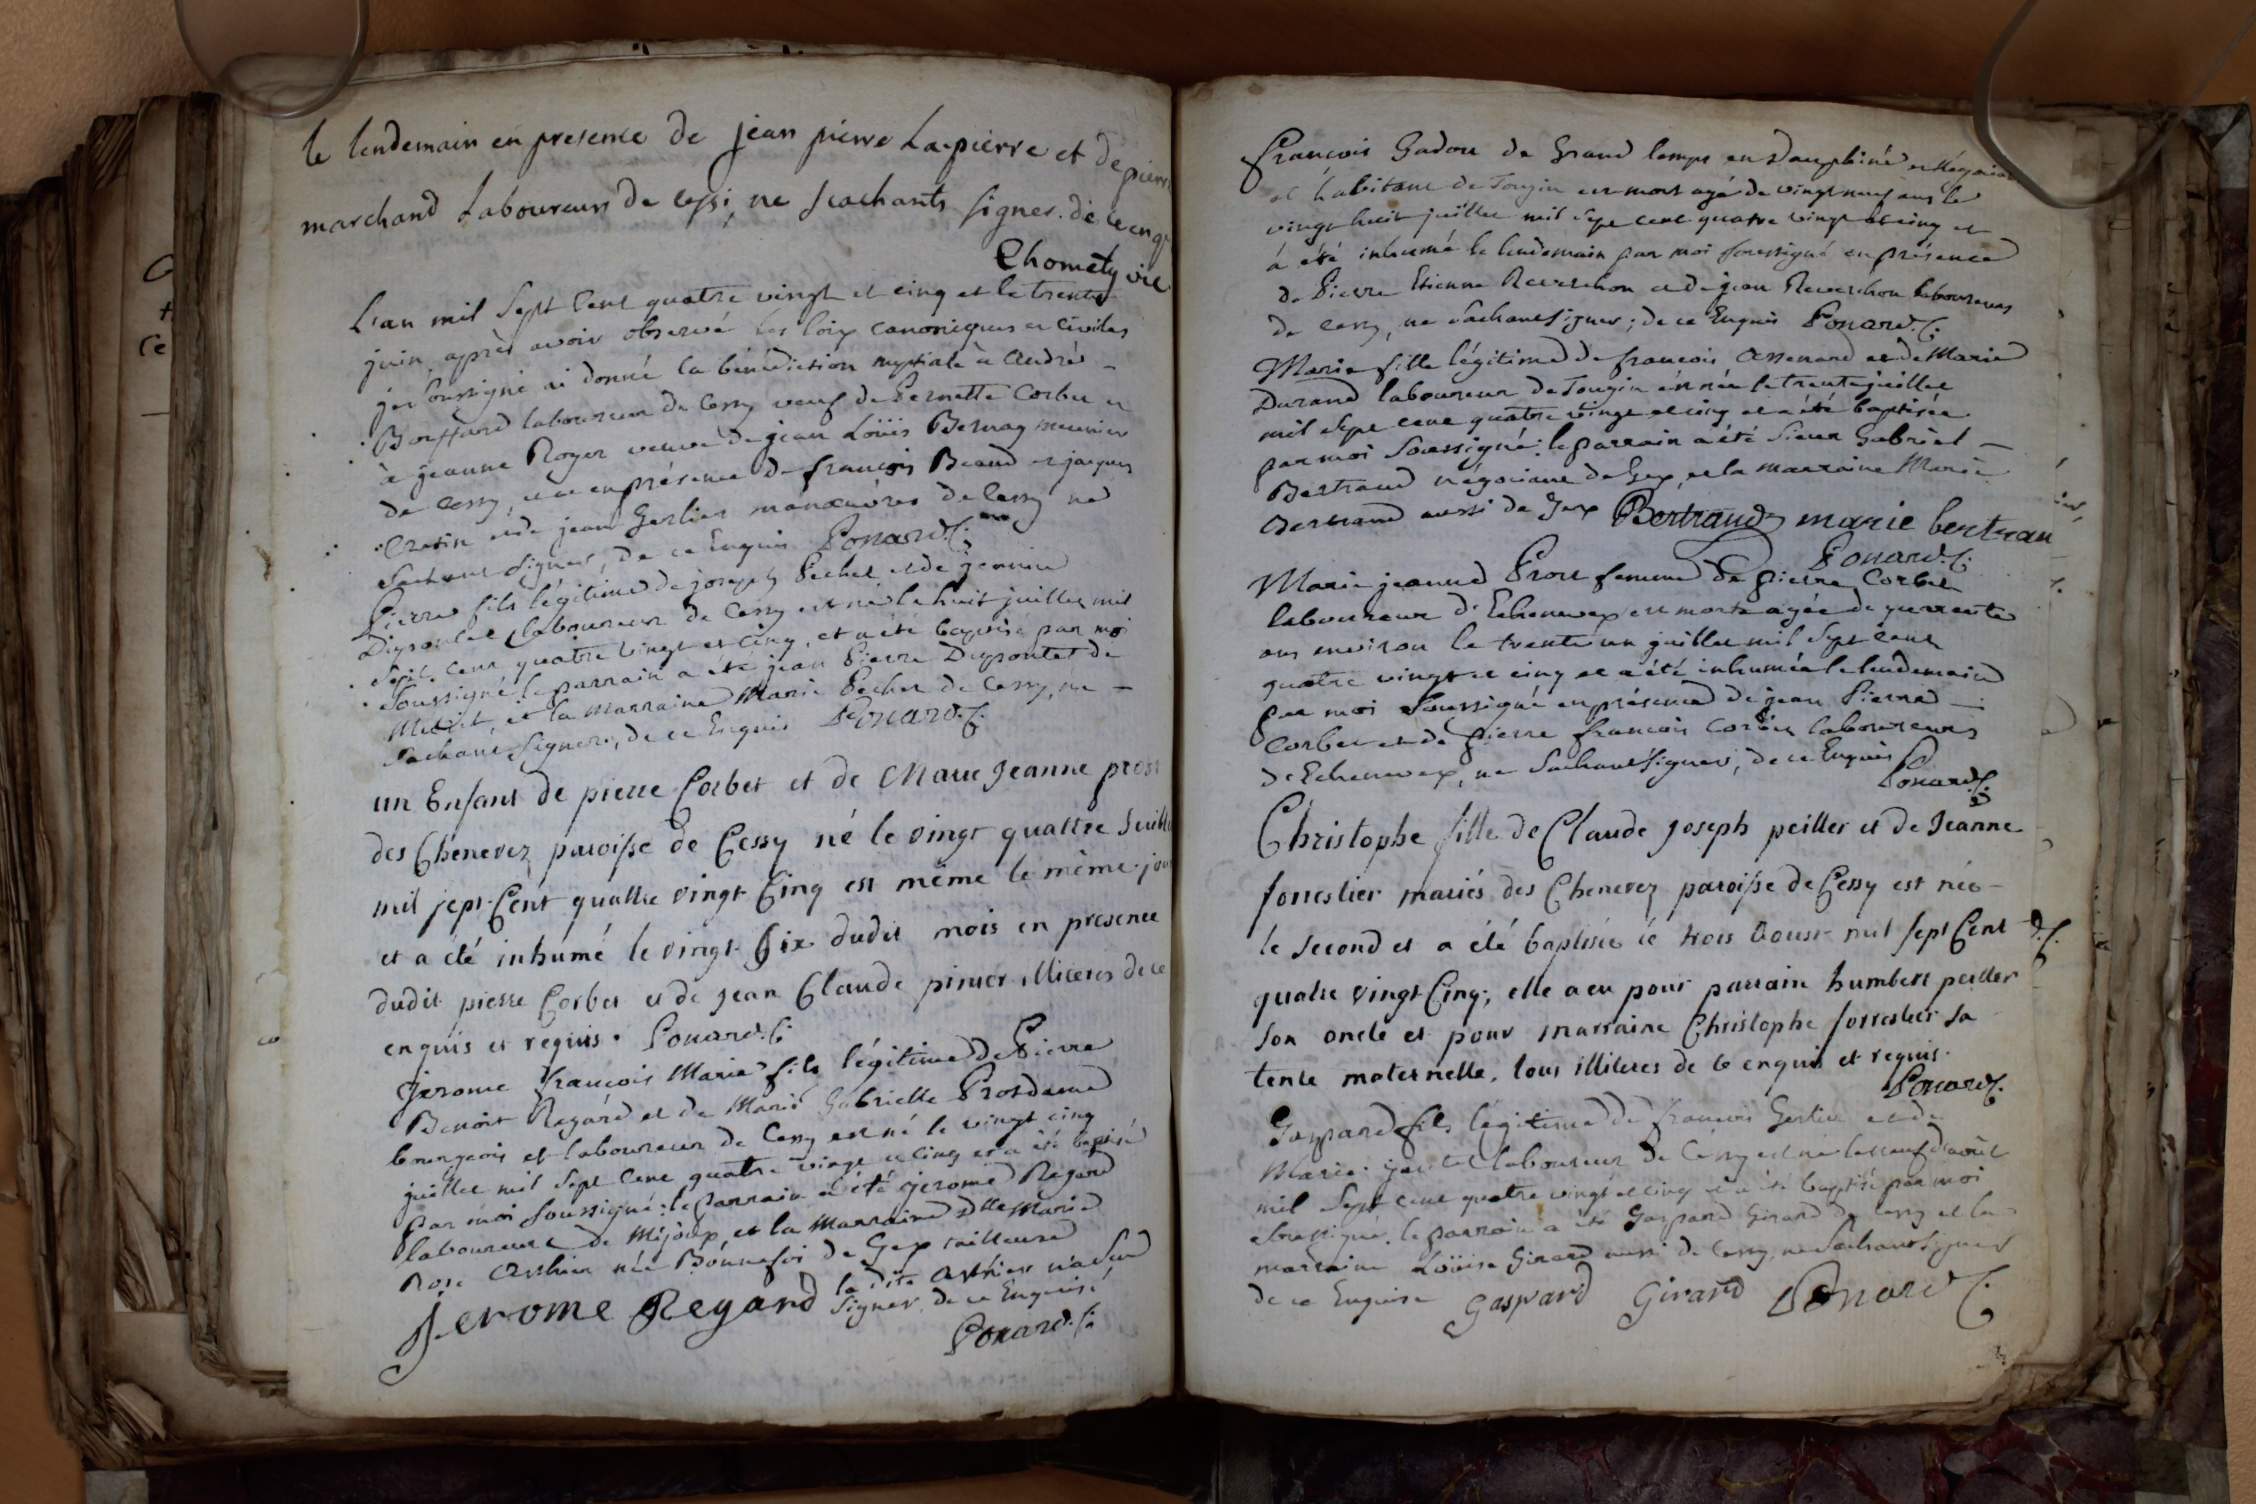 le lendemain en presence de jean pierre Lapierre et de pierre
marchand Laboureurs de cessi, ne scachants signer. de ce enq
Chomety vic
L'an mil sept cent quatre vingt et cinq et le trente
juin après avoir observé les loix canoniques et civiles
je soussigné ai donné la bénédiction nuptiale à André
Bouffard laboureur de Cessy veuf de Pernette Corbet et
à jeanne Roger veuve de jean Loüis Bernag meunier
de Cessy, et ce en présence de françois Beaud et jacques
Cretin et de jean Gerlier manœuvres de Cessy ne
sachant signer, de ce Enquis Ponard. C.
Pierre fils légitime de joseph Pechet et de jeanne
Dupontet laboureur de Cessy est né le huit juillet mil
sept cent quatre vingt et cinq, et a été baptisé par moi
soussigné le parrain a été jean Pierre Dupontet de
et la marraine Marie Pechet de Cessy, ne
sachant signer, de ce Enquis Ponard. C.
un Enfant de pierre Corbet et de Marie Jeanne pros
des Chenevez paroisse de Cessy né le vingt quattre Juill
mil sept Cent quattre vingt Cinq est même le même jou
et a été inhumé le vingt Six dudit mois en presence
dudit pierre Corbet et de Jean Claude pinier illiteres de ce
enquis et requis. Ponard. C.
Jerome françois Marie fils légitime de Pierre
Benoit Regard et de Marie Gabrielle Prosdame
bourgeois et laboureur de Cessy est né le vingt cinq
juillet mil sept cent quatre vingt et cinq et a été baptisé
par moi soussigné: le parrain a été jerome Regard
laboureur de Mijoux, et la marraine Dlle Marie
Rose Asthier née Bonnefoi de Gex tailleuse
la dite Asthier n'a su
Jerome Regard signer, de ce Enquise
Ponard. C.
françois Gadou de Grand lemps en Dauphiné et Négociant
et habitant de Tougin est mort agé de vingt neuf ans le
vingt huit juillet mil sept cent quatre vingt et cinq et
a été inhumé le lendemain par moi soussigné en présence
de Pierre Etienne Reverchon et de jean Reverchon laboureurs
de Cessy, ne sachant signer; de ce Enquis Ponard. C.
Marie fille légitime de françois Assenard et de Marie
Durand laboureur de Tougin est née le trente juillet
mil sept cent quatre vingt et cinq et a été baptisée
par moi soussigné: le parrain a été sieur Gabriel
Bertrand négociant de Gex, et la marraine Marie
Bertrand aussi de Gex Bertrand marie bertran
Ponard. C.
Marie jeanne Prost femme de pierre Corbet
laboureur d'Echenevex est morte agée de quarante
ans environ le trente un juillet mil sept cent
quatre vingt et cinq et a été inhumée le lendemain
par moi soussigné en présence de jean Pierre
Corbet et de pierre françois Corbet laboureurs
de Echenevex, ne sachant signer, de ce Enquis
Ponard. C.
Christophe fille de Claude Joseph peiller et de Jeanne
forrestier mariés des Chenevez paroisse de Cessy est née
le second et a été baptisée ce trois Aoust mil sept Cent
quatre vingt Cinq; elle a eu pour parrain humbert peiller
son oncle et pour marraine Christophe forrestier sa
tente maternelle, tous illiteres de ce enquis et requis.
Ponard. C.
Gaspard fils légitime de françois Gerlier et de
Marie laboureur de Cessy est né le neuf d'août
mil sept cent quatre vingt et cinq et a été baptisé par moi
soussigné. le parrain a été Gaspard Girard de Cessy et la
marraine Loüise Girard aussi de Cessy, ne sachant signer
de ce Enquise Gaspard Girard Ponard. C.